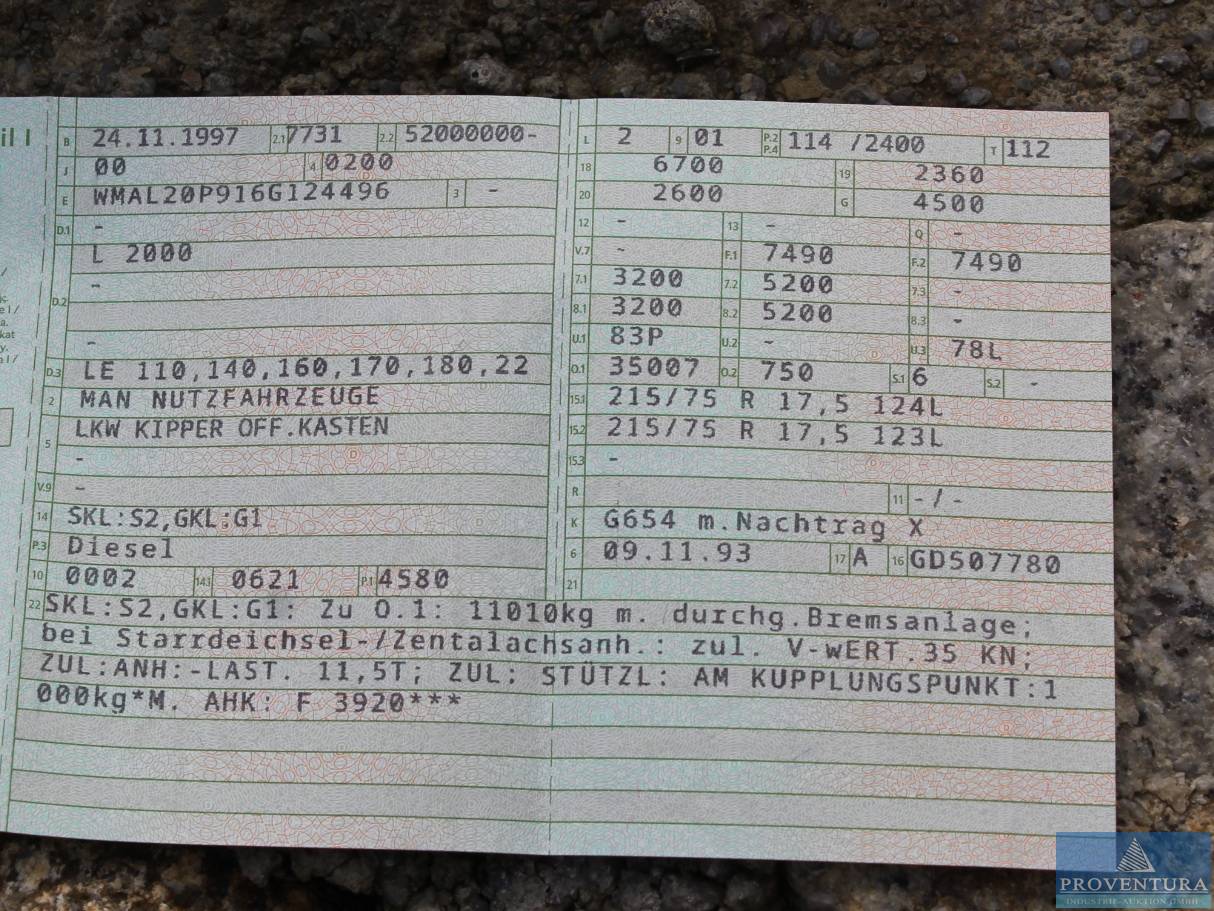 il I
B 24.11.1997 2.1 7731 2.2 52000000-
J 00 4 0200
E WMAL20P916G124496 3 -
D.1 -
L 2000
D.2 -
-
D.3 LE 110,140,160,170,180,22
2 MAN NUTZFAHRZEUGE
5 LKW KIPPER OFF.KASTEN
-
V.9 -
14 SKL:S2,GKL:G1
P.3 Diesel
10 0002 14.1 0621 P.1 4580
L 2 9 01 P.2 P.4 114 /2400 T 112
18 6700 19 2360
20 2600 G 4500
12 - 13 - Q -
V.7 - F.1 7490 F.2 7490
7.1 3200 7.2 5200 7.3 -
8.1 3200 8.2 5200 8.3 -
U.1 83P U.2 - U.3 78L
O.1 35007 O.2 750 S.1 6 S.2 -
15.1 215/75 R 17,5 124L
15.2 215/75 R 17,5 123L
15.3 -
R 11 -/-
K G654 m.Nachtrag X
6 09.11.93 17 A 16 GD507780
21
22 SKL:S2,GKL:G1: Zu O.1: 11010kg m. durchg.Bremsanlage;
bei Starrdeichsel-/Zentalachsanh.: zul. V-wERT.35 KN;
ZUL:ANH:-LAST. 11,5T; ZUL: STÜTZL: AM KUPPLUNGSPUNKT:1
000kg*M. AHK: F 3920***
PROVENTURA
INDUSTRIE-AUKTION GMBH